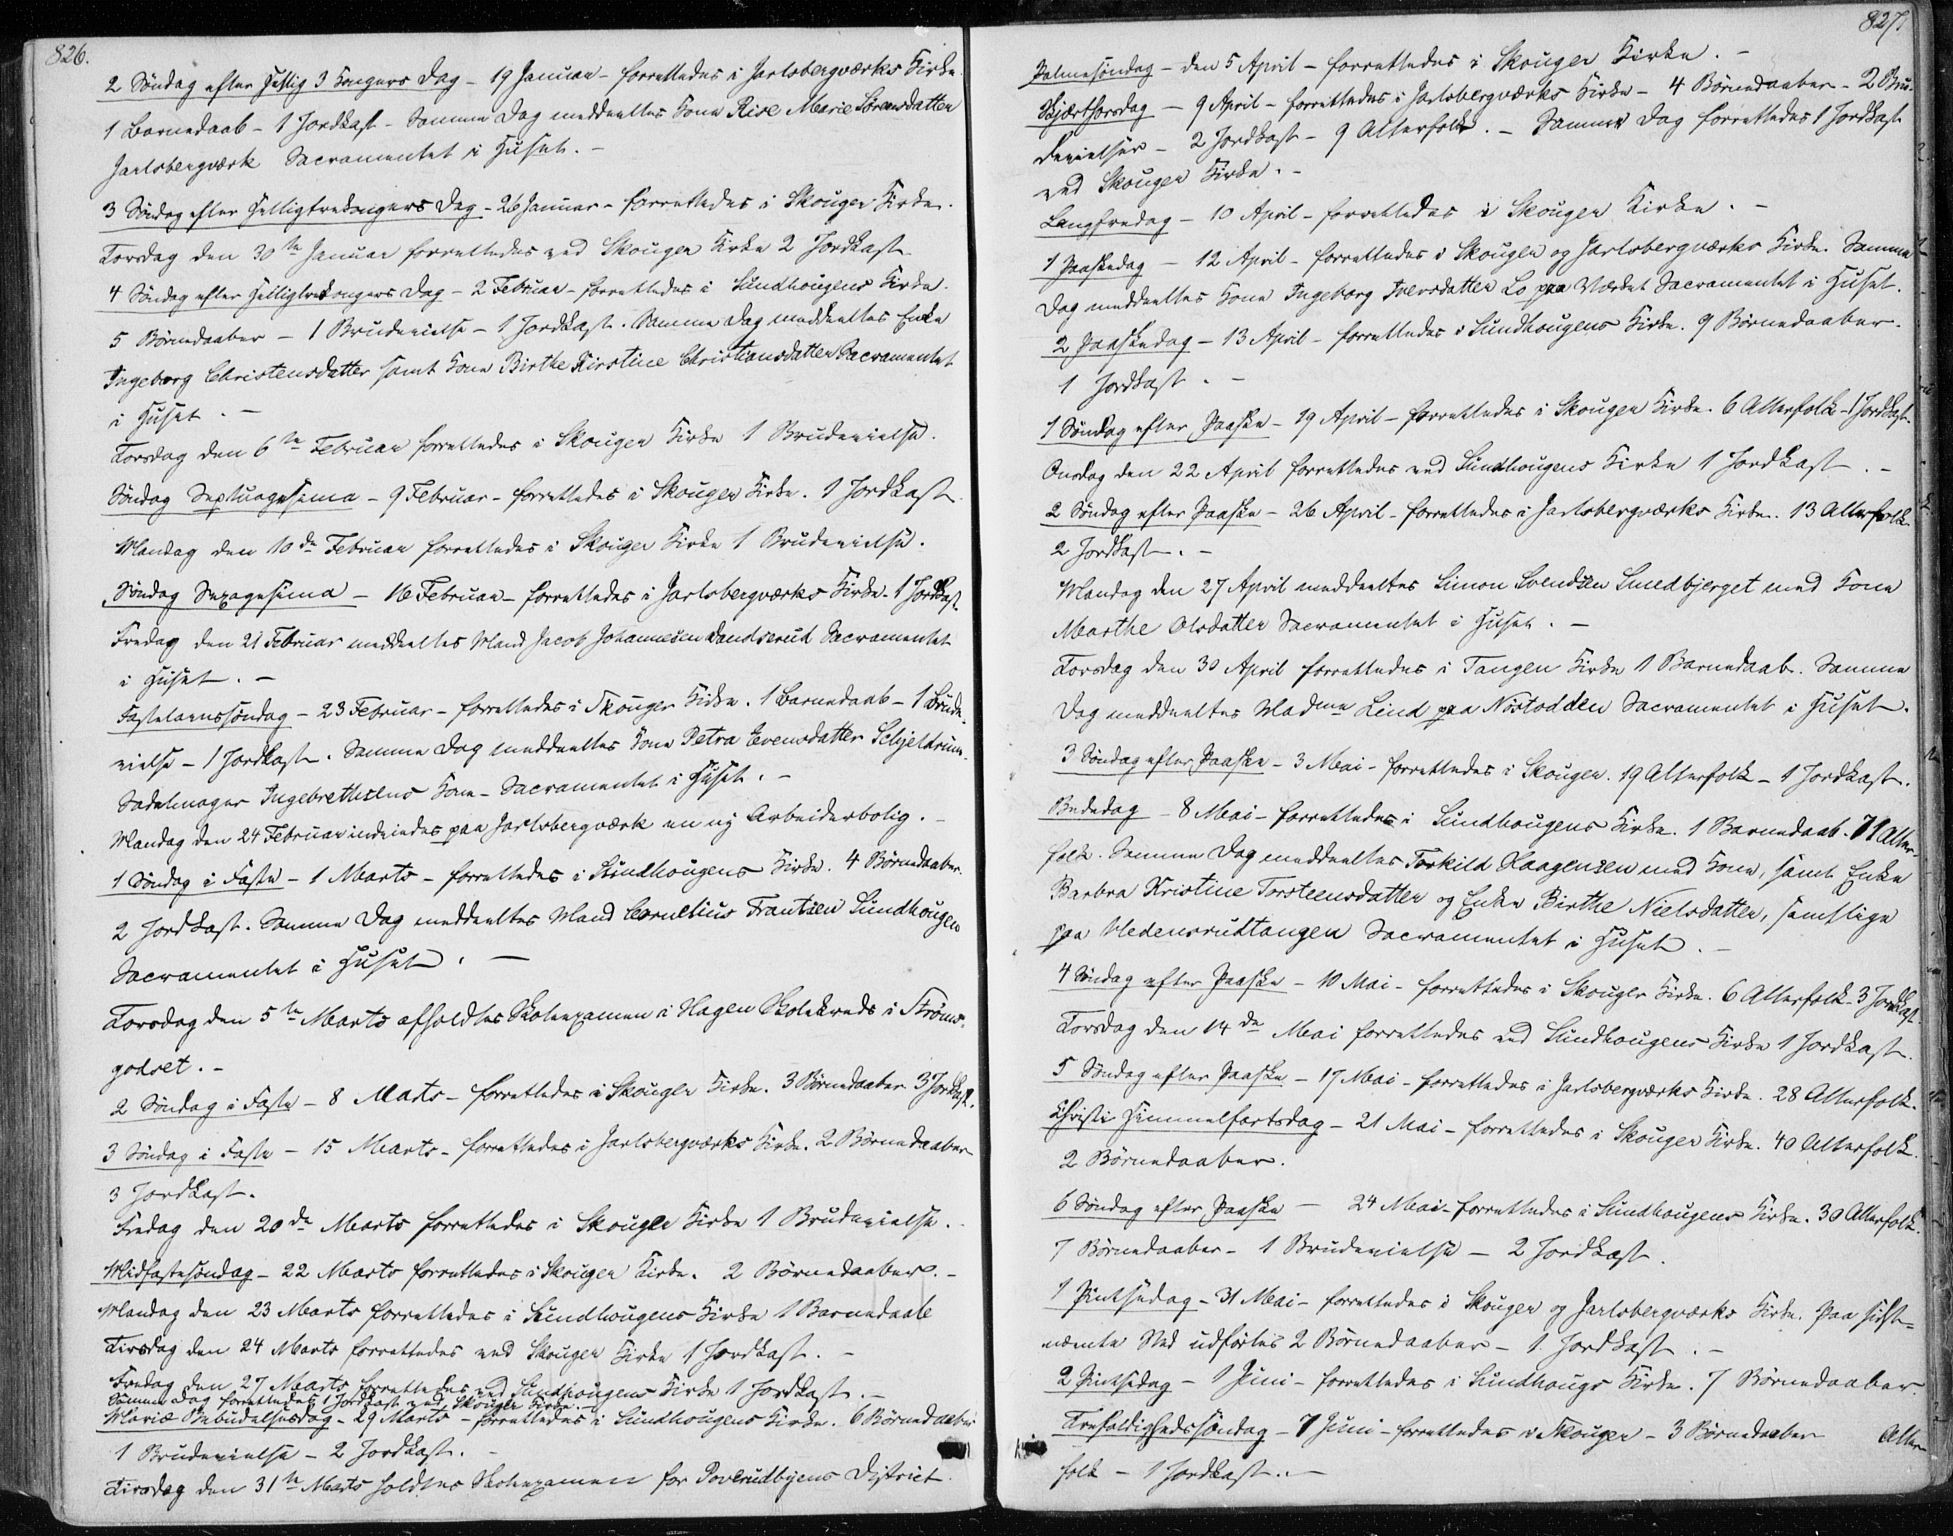 826.
2 Søndag efter Hellig 3 Kongers Dag - 19 Januar - forrettedes i Jarlsbergværks Kirke.
1 Barnedaab - 1 Jordkast - Samme Dag meddeeltes Kone Rise Marie Sørensdatter
Jarlsbergværk Sacramentet i Huset. -
3 Søndag efter Helligtrekongers Dag - 26 Januar - forrettedes i Skouger Kirke.
Torsdag den 30te Januar forrettedes ved Skouger Kirke 2 Jordkast
4 Søndag efter Helligtrekongers Dag - 2 Februar - forrettedes i Sundhougens Kirke.
5 Børnedaaber - 1 Brudevielse - 1 Jordkast. Samme Dag meddeeltes Enke
Ingeborg Christensdatter samt Kone Birthe Kirstine Christiansdatter Sacramentet
i Huset. -
Torsdag den 6te Februar forrettedes i Skouger Kirke 1 Brudevielse.
Søndag Septuagesima - 9 Februar - forrettedes i Skouger Kirke. 1 Jordkast
Mandag den 10de Februar forrettedes i Skouger Kirke 1 Brudevielse.
Søndag Sexagesima - 16 Februar - forrettedes i Jarlsbergværks Kirke - 1 Jordkast
Fredag den 21 Februar meddeeltes Mand Jacob Johannesen Dandserud Sacramentet
i Huset. -
Fastelavnssøndag - 23 Februar - forrettedes i Skouger Kirke. 1 Barnedaab - 1 Brude-
vielse - 1 Jordkast. Samme Dag meddeeltes Kone Petra Evensdatter Schjeldrum-
Sadelmager Ingebrethsens Kone - Sacramentet i Huset. -
Mandag den 24 Februar indviedes paa Jarlsbergværk en ny Arbeiderbolig. -
1 Søndag i Faste - 1 Marts - forrettedes i Sundhougens Kirke. 4 Børnedaaber.
2 Jordkast. Samme Dag meddeeltes Mand Cornelius Frantsen Sundhougen
Sacramentet i Huset. -
Torsdag den 5te Marts afholdtes Skoleexamen i Hagen Skolekreds i Strøms-
godset. -
2 Søndag i Faste - 8 Marts - forrettedes i Skouger Kirke. 3 Børnedaaber 3 Jordkast.
3 Søndag i Faste - 15 Marts - forrettedes i Jarlsbergværks Kirke. 2 Børnedaaber
3 Jordkast.
Fredag den 20de Marts forrettedes i Skouger Kirke 1 Brudevielse.
Midfastesøndag - 22 Marts forrettedes i Skouger Kirke. 2 Børnedaaber. -
Mandag den 23 Marts forrettedes i Sundhougens Kirke 1 Barnedaab
Tirsdag den 24 Marts forrettedes ved Skouger Kirke 1 Jordkast. -
Fredag den 27 Marts forrettedes ved Sundhougens Kirke 1 Jordkast. -
Samme Dag forrettedes 1 Jordkast ved Skouger Kirke. -
Mariæ Bebudelsesdag - 29 Marts - forrettedes i Sundhougens Kirke. 6 Børnedaaber
1 Brudevielse - 2 Jordkast. -
Tirsdag den 31te Marts holdtes Skoleexamen for Poverudbyens District.
827.
Palmesøndag - den 5 April - forrettedes i Skouger Kirke. -
Skjærthorsdag - 9 April - forrettedes i Jarlsbergværks Kirke - 4 Børnedaaber - 2 Bru-
devielser - 2 Jordkast - 9 Alterfolk. - Samme Dag forrettedes 1 Jordkast
ved Skouger Kirke. -
Langfredag - 10 April - forrettedes i Skouger Kirke. -
1 Paaskedag - 12 April - forrettedes i Skouger og Jarlsbergværks Kirke. Samme
Dag meddeeltes Kone Ingeborg Iversdatter Lo paa Værket Sacramentet i Huset.
2 Paaskedag - 13 April - forrettedes i Sundhougens Kirke. 9 Børnedaaber.
1 Jordkast. -
1 Søndag efter Paaske - 19 April - forrettedes i Skouger Kirke. 6 Alterfolk - 1 Jordkast.
Onsdag den 22 April forrettedes ved Sundhougens Kirke 1 Jordkast. -
2 Søndag efter Paaske - 26 April - forrettedes i Jarlsbergværks Kirke. 13 Alterfolk
2 Jordkast. -
Mandag den 27 April meddeeltes Simon Svendsen Smedbjerget med Kone
Marthe Olsdatter Sacramentet i Huset. -
Torsdag den 30 April forrettedes i Tangen Kirke 1 Barnedaab. Samme
Dag meddeeltes Madme Lind paa Nøstodden Sacramentet i Huset.
3 Søndag efter Paaske - 3 Mai - forrettedes i Skouger. 19 Alterfolk - 1 Jordkast.
Bededag - 8 Mai - forrettedes i Sundhougens Kirke. 1 Barnedaab. 71 Alter-
folk. Samme Dag meddeeltes Torkild Haagensen med Kone, samt Enke
Barbra Kristine Torsteensdatter og Enke Birthe Nielsdatter, samtlige
paa Hedensrudtangen Sacramentet i Huset. -
4 Søndag efter Paaske - 10 Mai - forrettedes i Skouger Kirke. 6 Alterfolk - 3 Jordkast.
Torsdag den 14de Mai forrettedes ved Sundhougens Kirke 1 Jordkast.
5 Søndag efter Paaske - 17 Mai - forrettedes i Jarlsbergværks Kirke. 28 Alterfolk.
Christi Himmelfartsdag - 21 Mai - forrettedes i Skouger Kirke. 40 Alterfolk.
2 Børnedaaber.
6 Søndag efter Paaske - 24 Mai - forrettedes i Sundhougens Kirke. 30 Alterfolk.
7 Børnedaaber - 1 Brudevielse - 2 Jordkast.
1 Pintsedag - 31 Mai - forrettedes i Skouger og Jarlsbergværks Kirke. Paa sidst-
nævnte Sted udførtes 2 Børnedaaber - 1 Jordkast. -
2 Pintsedag - 1 Juni - forrettedes i Sundhougs Kirke. 7 Børnedaaber.
Trefoldighedssøndag - 7 Juni - forrettedes i Skouger - 3 Børnedaaber Alter-
folk - 1 Jordkast. -